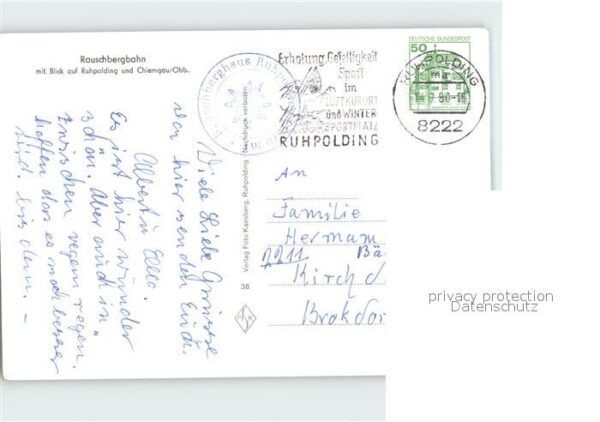 Rauschbergbahn
mit Blick auf Ruhpolding und Chiemgau/Obb.
Viele Liebe Grüsse
von hier senden Euch.
Albert u Ella.
Es ist hier wunder
schön. Aber auch in
zwischen regen.
hoffen das es noch besser
wird. bis dann. –
Verlag Foto-Kamsberg, Ruhpolding Nachdruck verboten
38
Erholung, Geselligkeit
Sport
im
LUFTKURORT
und WINTER
SPORTPLATZ
RUHPOLDING
DEUTSCHE BUNDESPOST
50
RUHPOLDING
8222
An
Familie
Hermann
2211 Bä
Kirch
Brokdor
privacy protection
Datenschutz